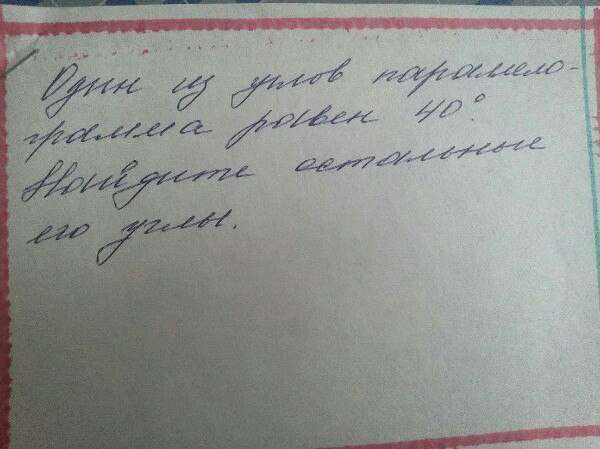 Один из углов парамело-
грамма равен 40°.
Найдите остальные
его углы.